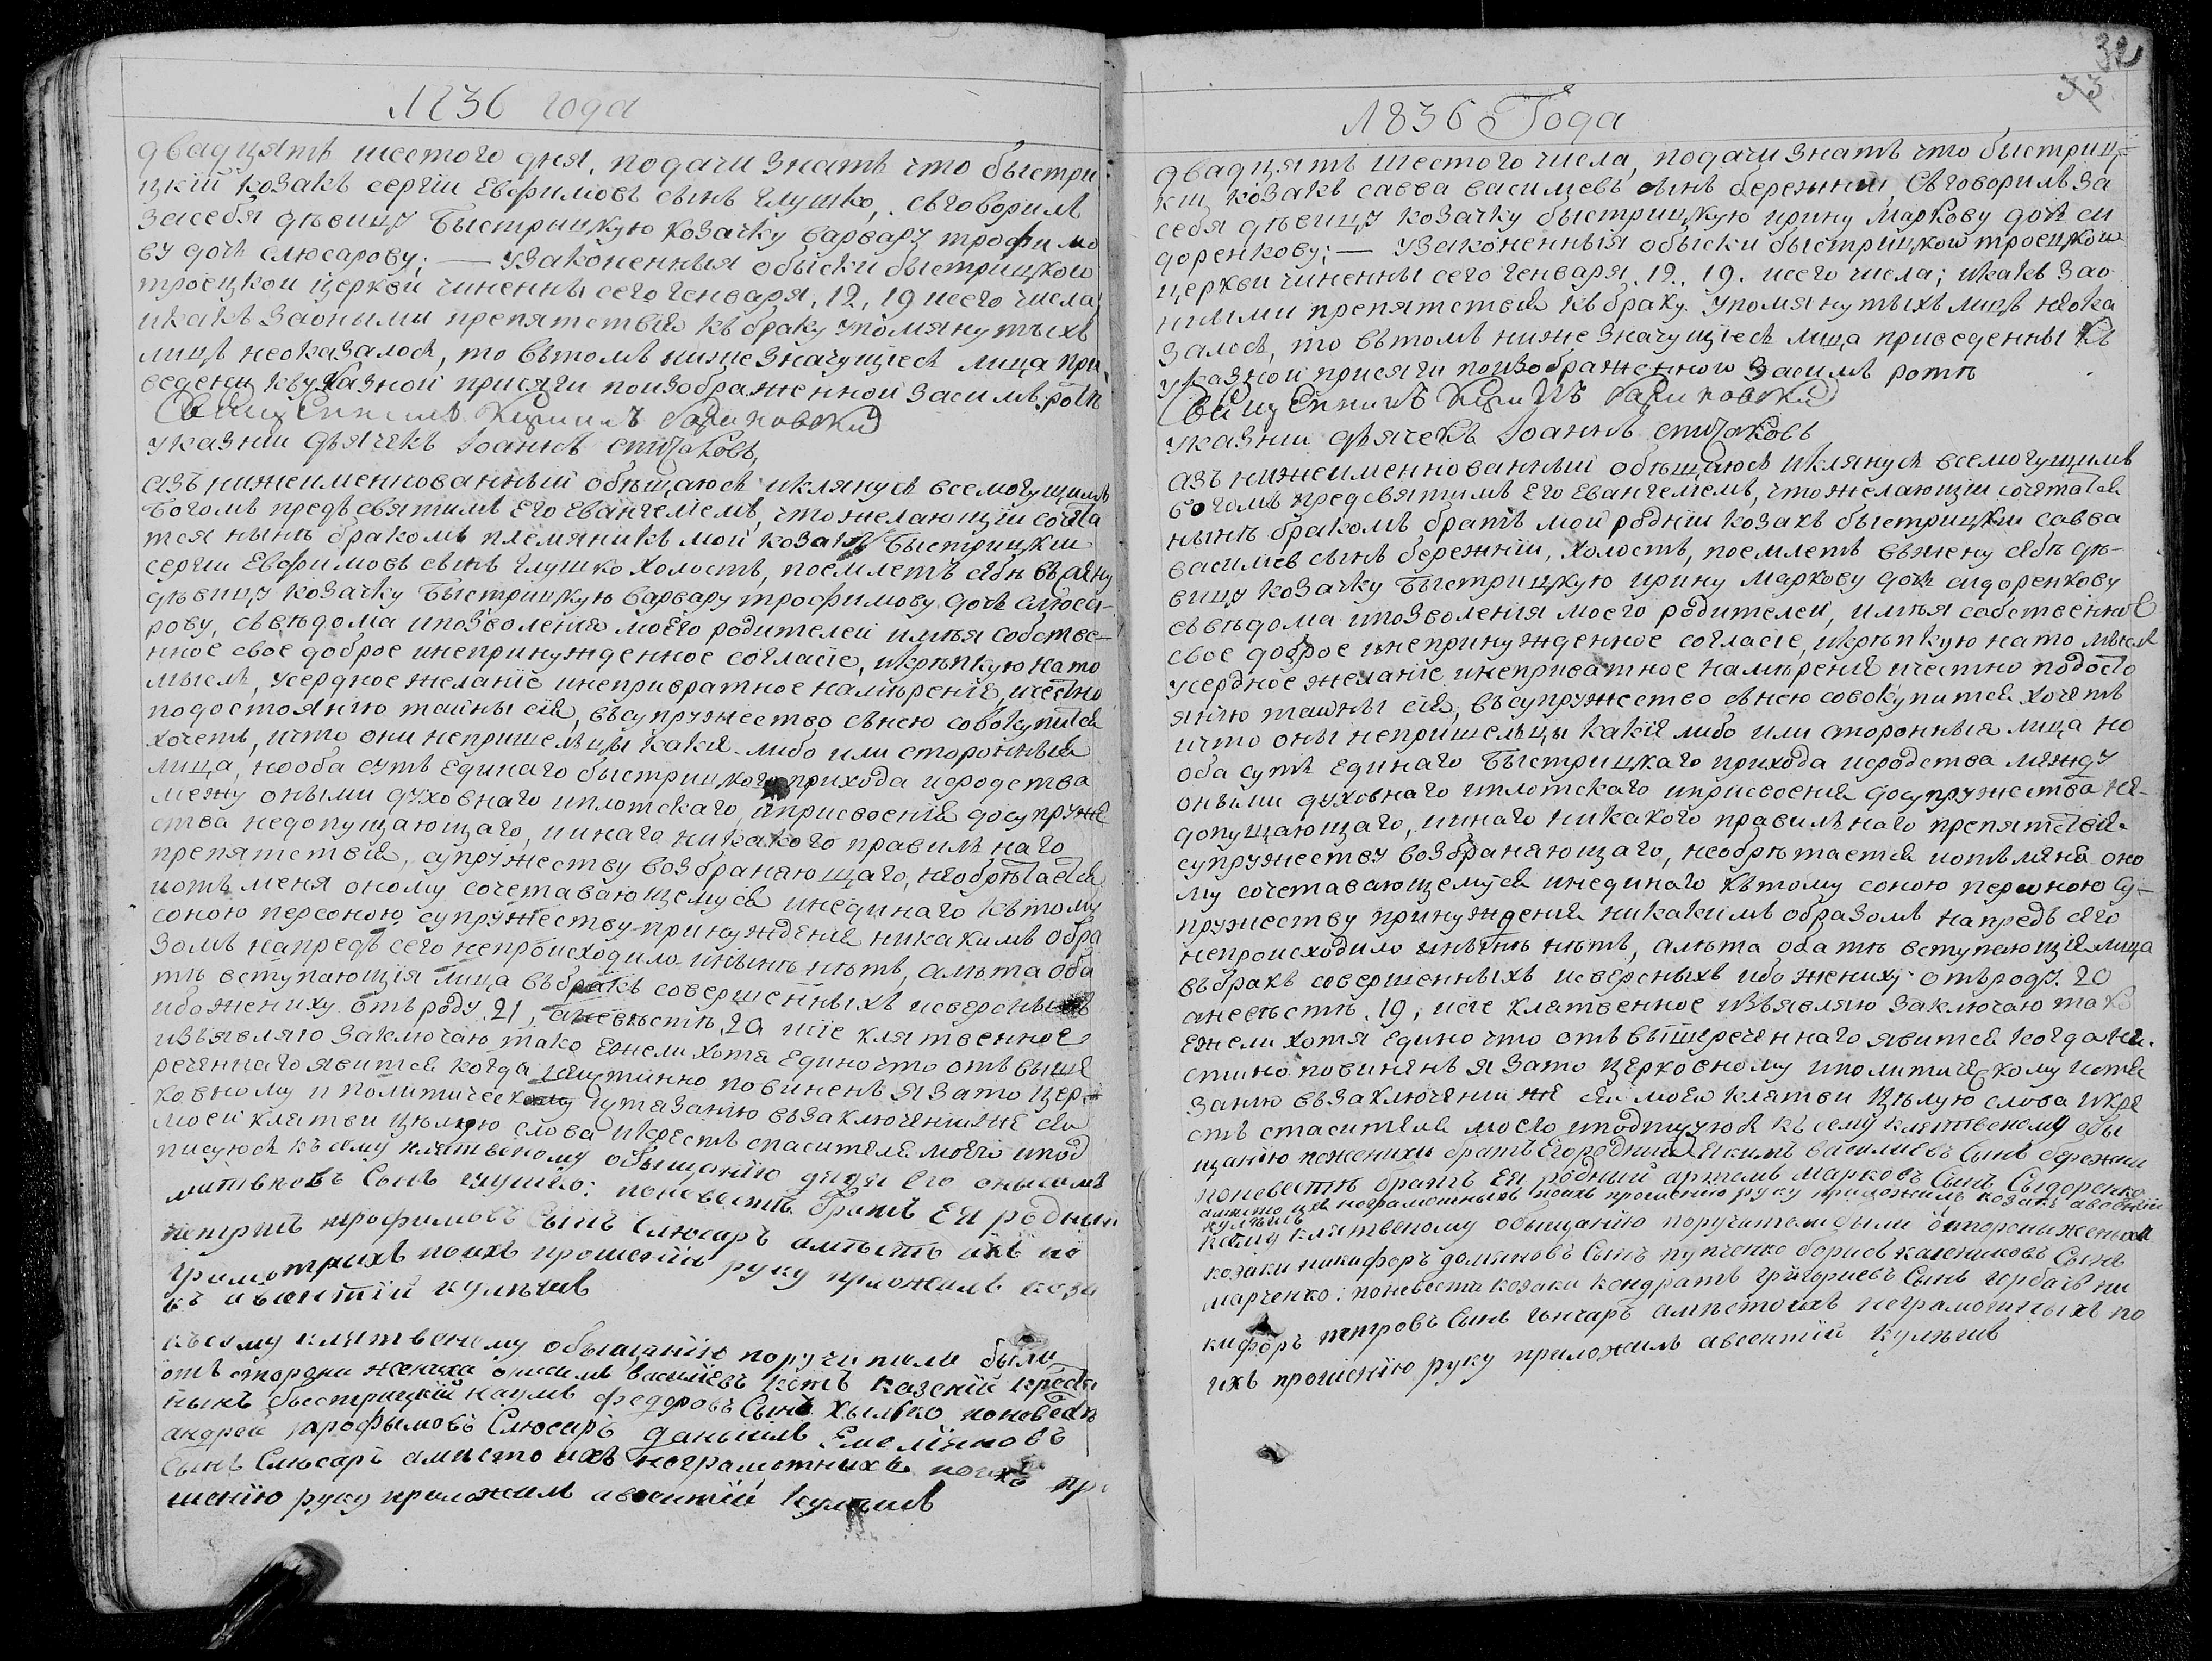 1836 года
двадцять шестого дня, подачи знать что быстри
цкїй козакъ сергїи Евфимовъ сынъ глушко, съговорилъ
засебя дѣвицу Быстрицкую козачку варвару трофимо
ву дочь слюсарову; — узаконенныя обыски быстрицкои
троецкои церкви чиненны сего генваря, 12, 19 исего числа
икакъ заоными препятствїя къбраку упомянутыхъ
лицъ неоказалось, то вътомъ ниже значущїеся лица при
ведены къуказной присяги поизображенной засимъ ротѣ
указнии дячекъ Iоаннъ
азъ нижеименнованный обѣщаюсь иклянусь всемогущимъ
Богомъ предъ святимъ Его Евангелїемъ, что желающїи сочета
тся нынѣ бракомъ племяникъ мой козакъ Быстрицкїи
сергїи Евфимовъ сынъ глушко холостъ, поемлетъ себѣ въжену
дѣвицу козачку Быстрицкую варвару трофимову дочь слюса-
рову, съвѣдома ипозволенїя моего родителей имѣя собстве-
нное свое доброе инепринужденное согласїе, икрѣпкую нато
мысль, усердное желанїе инепривратное намѣренїе, ичестно
подостоянїю тайны сїя, въсупружество сънею совокупится
хочетъ, ичто они непришельцы какїя-либо или стороннїя
лица, нооба суть Единаго быстрицкого прихода исродства
межу оными духовнаго иплотскаго, иприсвоенїя досупруже
ства недопущающаго, иинаго никакого правильнаго
препятствїя, супружеству возбраняющаго, необрѣтается
иотъ меня оному сочетавающемуся инединаго кътому
соною персоною супружеству принужденїя никакимъ обра
зомъ напредъ сего непроисходило инынѣ нѣтъ, алѣта оба
тѣ вступающїя лица въбракъ совершенныхъ иверсныхъ
ибо жениху отъ роду 21, аневѣстѣ, 20 исїе клятвенное
изъявляю заключаю тако Ежели хотя Едино что отъ выше
реченнаго явится когда неистинно повиненъ я зато цер-
ковному и политическому истязанїю възаключенїи же сея
моей клятви цѣлую слова икрестъ спасителя моего ипод
писуюся къ сему клятвеному обѣщанїю дядя Его онисимъ
сынъ глушко: поневестѣ братъ Ея родный
петръ трофимовъ сынъ Слюсаръ амѣсто ихъ не
грамотныхъ поихъ прошенїю руку приложилъ коза
къ авсентїй кулѣшъ
къ сему клятвеному обѣщанїю поручители были
отъ стороны жениха онисимъ василїевъ котъ казенїй
быстрицкїй наумъ федоровъ Сынъ хылько поневестѣ
андрей трофымовъ Слюсаръ даныилъ Емелїяновъ
Сынъ Слюсаръ амѣсто ихъ неграмотныхъ поихъ пр
шенїю руку приложилъ авсентїй кулѣшъ
32
33
1836 Года
двадцять шестого числа, подачи знать что быстриц-
кїи козакъ савва василїевъ сынъ бережнїи, съговорилъ за
себя дѣвицу козачку быстрицкую ирину маркову дочь си
доренкову; — узаконенныя обыски быстрицкой троецкои
церкви чиненны сего генваря, 12, 19. исего числа; икакъ зао
ными препятствїя къбраку упомянутыхъ лицъ неока
залось, то вътомъ ниже значущїеся лица приведенны къ
указной присяги поизображенного засимъ ротѣ
указнии дячекъ Iоаннъ
азъ нижеименнованный обѣщаюсь иклянусь всемогущимъ
богомъ предсвятимъ Его Евангелїемъ, что желающїи сочетатся
нынѣ бракомъ братъ мой роднїи козакъ быстрицкїи савва
василїев сынъ бережнїи, холостъ, поемлетъ въжену себѣ дѣ-
вицу козачку Быстрицкую ирину маркову дочь сидоренкову
съвѣдома ипозволенїя моего родителей, имѣя собственное
свое доброе инепринужденное согласїе, икрѣпкую нато мысль
усердное желанїе инепривратное намѣренїе ичестно подосто
янїю тайны сїя, въсупружество сънею совокупится хочетъ
ичто оны непришельцы какїя либо или стороннїя лица но
оба суть Единаго Быстрицкаго прихода исродства между
оными духовнаго иплотскаго иприсвоенїя досупружества не-
допущающаго, иинаго никакого правильнаго препятствїя
супружеству возбраняющаго, необрѣтается иотъ меня оно
му сочетавающемуся инединаго кътому соною персоною су-
пружеству принужденїя никакимъ образомъ напредъ сего
непроисходило инынѣ нѣтъ, алѣта оба тѣ вступающїя лица
въбракъ совершенныхъ иверсныхъ ибо жениху отъроду 20
аневѣстѣ. 19, исїе клятвенное изъявляю заключаю тако
Ежели хотя Едино что отъ вышереченнаго явится когда неи-
стино повиненъ я зато церковному иполитическому истя
занїю възаключенїи же сея моея клятви цѣлую слова икре
стъ спасителя моего иподписуюся къ сему клятвеному обѣ
щанїю пожениху братъ Его роднїй Якимъ василїевъ Сынъ бережнїи
поневестѣ братъ Ея родный артемъ марковъ Сынъ Сыдоренко
амѣсто ихъ неграмотныхъ поихъ прошенїю руку приложилъ козакъ авсентїй
кулѣшъ
ксему клятвеному обѣщанїю поручители были отстороны жениха
козаки никифоръ домяновъ Сынъ пупченко борисъ калениковъ Сынъ
марченко: поневеста козаки кондратъ григориевъ Сынъ горбачъ ни
кифоръ петровъ Сынъ гончаръ амѣсто ихъ неграмотныхъ по
ихъ прошенїю руку приложилъ авсентїй кулѣшъ